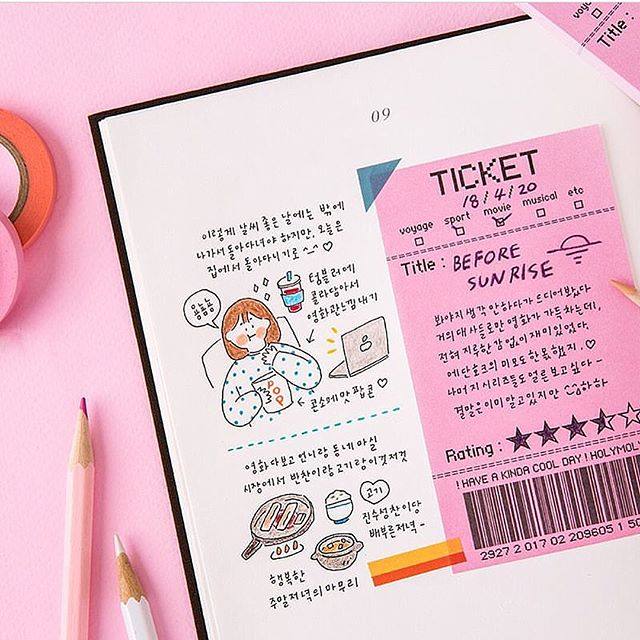 09
이렇게 날씨 좋은 날에는 밖에
나가서 돌아다녀야 하지만, 오늘은
집에서 돌아다니기로 ^_^ ♡
텀블러에
콜라담아서
영화관느낌 내기
옴뇸뇸
POP
콘소메 맛 팝콘 ♡
영화 다보고 언니랑 동네 마실
시장에서 반찬이랑 고기랑 이것저것
고기
진수성찬이당
배부른저녁 ~
행복한
주말저녁의 마무리
TICKET
18/4/20
voyage sport movie musical etc
Title : BEFORE
SUNRISE
봐야지 생각 안하다가 드디어 봤다
거의 대사들로만 영화가 가득차는데,
전혀 지루한 감 없이 재미있었다.
에단호크의 미모도 한몫했지. ♡
나머지 시리즈들도 얼른 보고싶다 -
결말은 이미 알고있지만 하하
Rating : ★★★
! HAVE A KINDA COOL DAY ! HOLYMOLY
2927 2 017 02 209605 1 50
voya
Title :